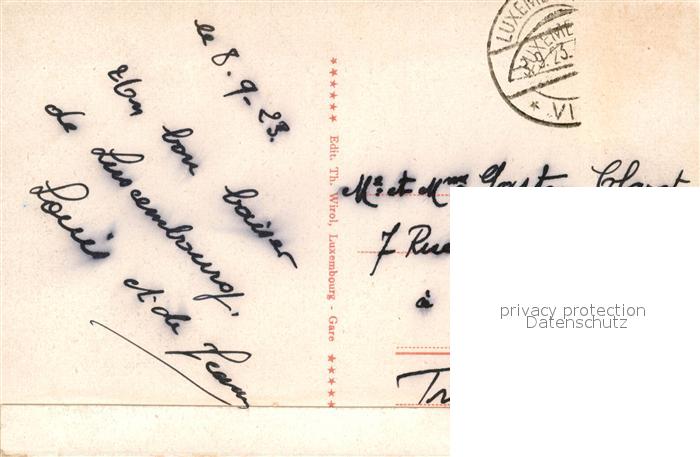 le 8.9-23.
Un bon baiser
de Luxembourg.
Louis et de Jeanne
★★★★★★ Edit. Th. Wirol, Luxembourg - Gare ★★★★★
LUXEM
LUXEMB
9.23.
* VI
Mr et Mme
7 Rue
à
privacy protection
Datenschutz